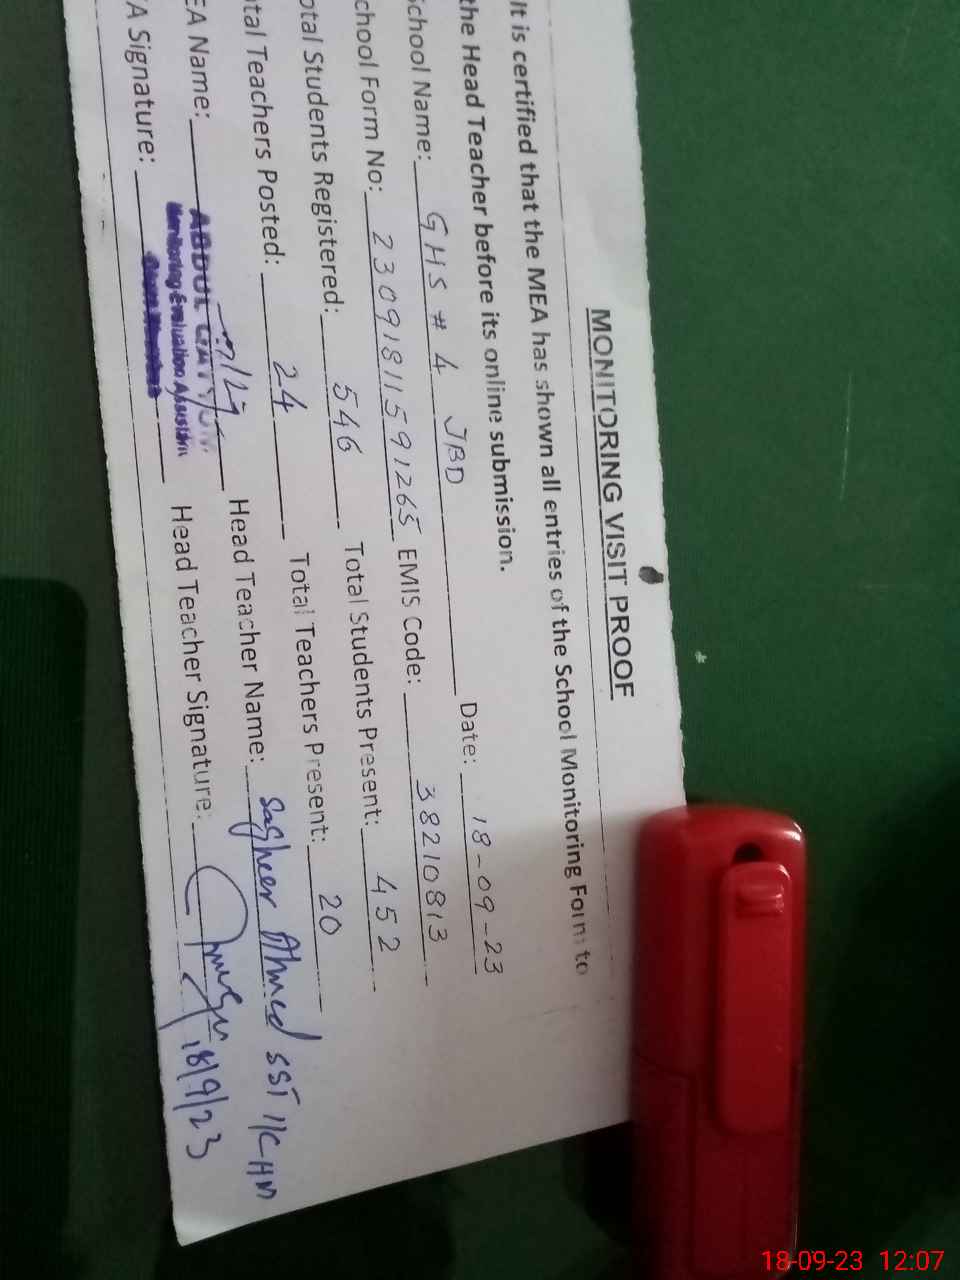 MONITORING VISIT PROOF
It is certified that the MEA has shown all entries of the School Monitoring Form to
the Head Teacher before its online submission.
School Name: GHS # 4 JBD Date: 18-09-23
chool Form No: 230918115912​65 EMIS Code: 38210813
otal Students Registered: 546 Total Students Present: 452
tal Teachers Posted: 24 Total Teachers Present: 20
EA Name: ABDUL QAYYUM Head Teacher Name: Sagheer Ahmed SST I/C HM
Monitoring Evaluation Assistant
A Signature: Head Teacher Signature: 18/9/23
18-09-23 12:07